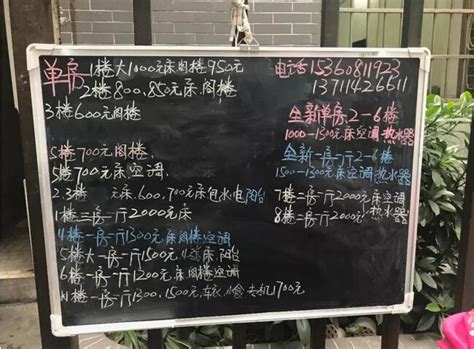 单房 1楼大1000元床阁楼950元
2楼800.850元阁楼
3楼600元阁楼
5楼700元阁楼
5楼700元床空调
2.3楼 元床.600.700元包水电阳台
1楼二房一厅2000元床
4楼一房一厅1300元床阁楼空调
5楼大一房一厅1500元 床 阳台
6楼一房一厅1200元床阁楼空调
楼一房一厅1300.1500元 1700元
电话15360811923
13711426611
全新单房2-6楼
1000-1300元床空调热水器
全新一房一厅2-6楼
1500-1300元床空调热水器
7楼二房一厅2000元
8楼二房一厅2000元热水器